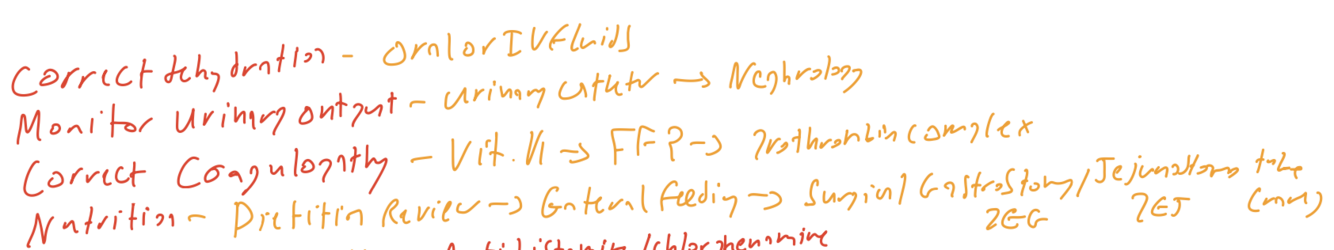 Correct dehydration - Oral or IV Fluids
Monitor Urinary output - Urinary catheter → Nephrology
Correct Coagulopathy - Vit. K → FFP → Prothrombin complex
Nutrition - Dietitin Review → Enteral Feeding → Surgical Gastrostomy/Jejunostomy tube
PEG PEJ
/chlorphenamine